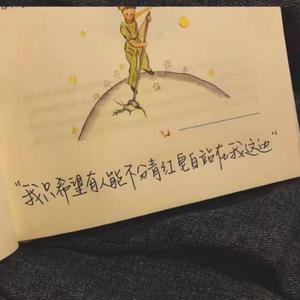 "我只希望有人能不分青红皂白站在我这边"